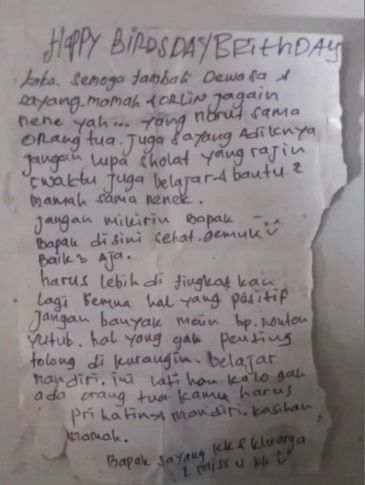 HAPPY BIRDSDAY BRITHDAY
kaka. semoga tambah Dewasa &
sayang. mamah & ORLIN jagain
nene yah... yang nurut sama
orang tua. juga sayang Adiknya
jangan lupa sholat yang rajin
waktu juga belajar & bantu 2
mamah sama nenek.
jangan mikirin Bapak
Bapak disini sehat. gemuk
Baik2 Aja.
harus lebih di tingkat kan
lagi semua hal yang positif
jangan banyak main hp. nonton
yutub. hal yang gak penting
tolong di kurangin. belajar
mandiri. ini latihan kalo gak
ada orang tua kamu harus
prihatin & mandiri. kasihan
mamah.
Bapak sayang kk & kluarga
i miss u kk